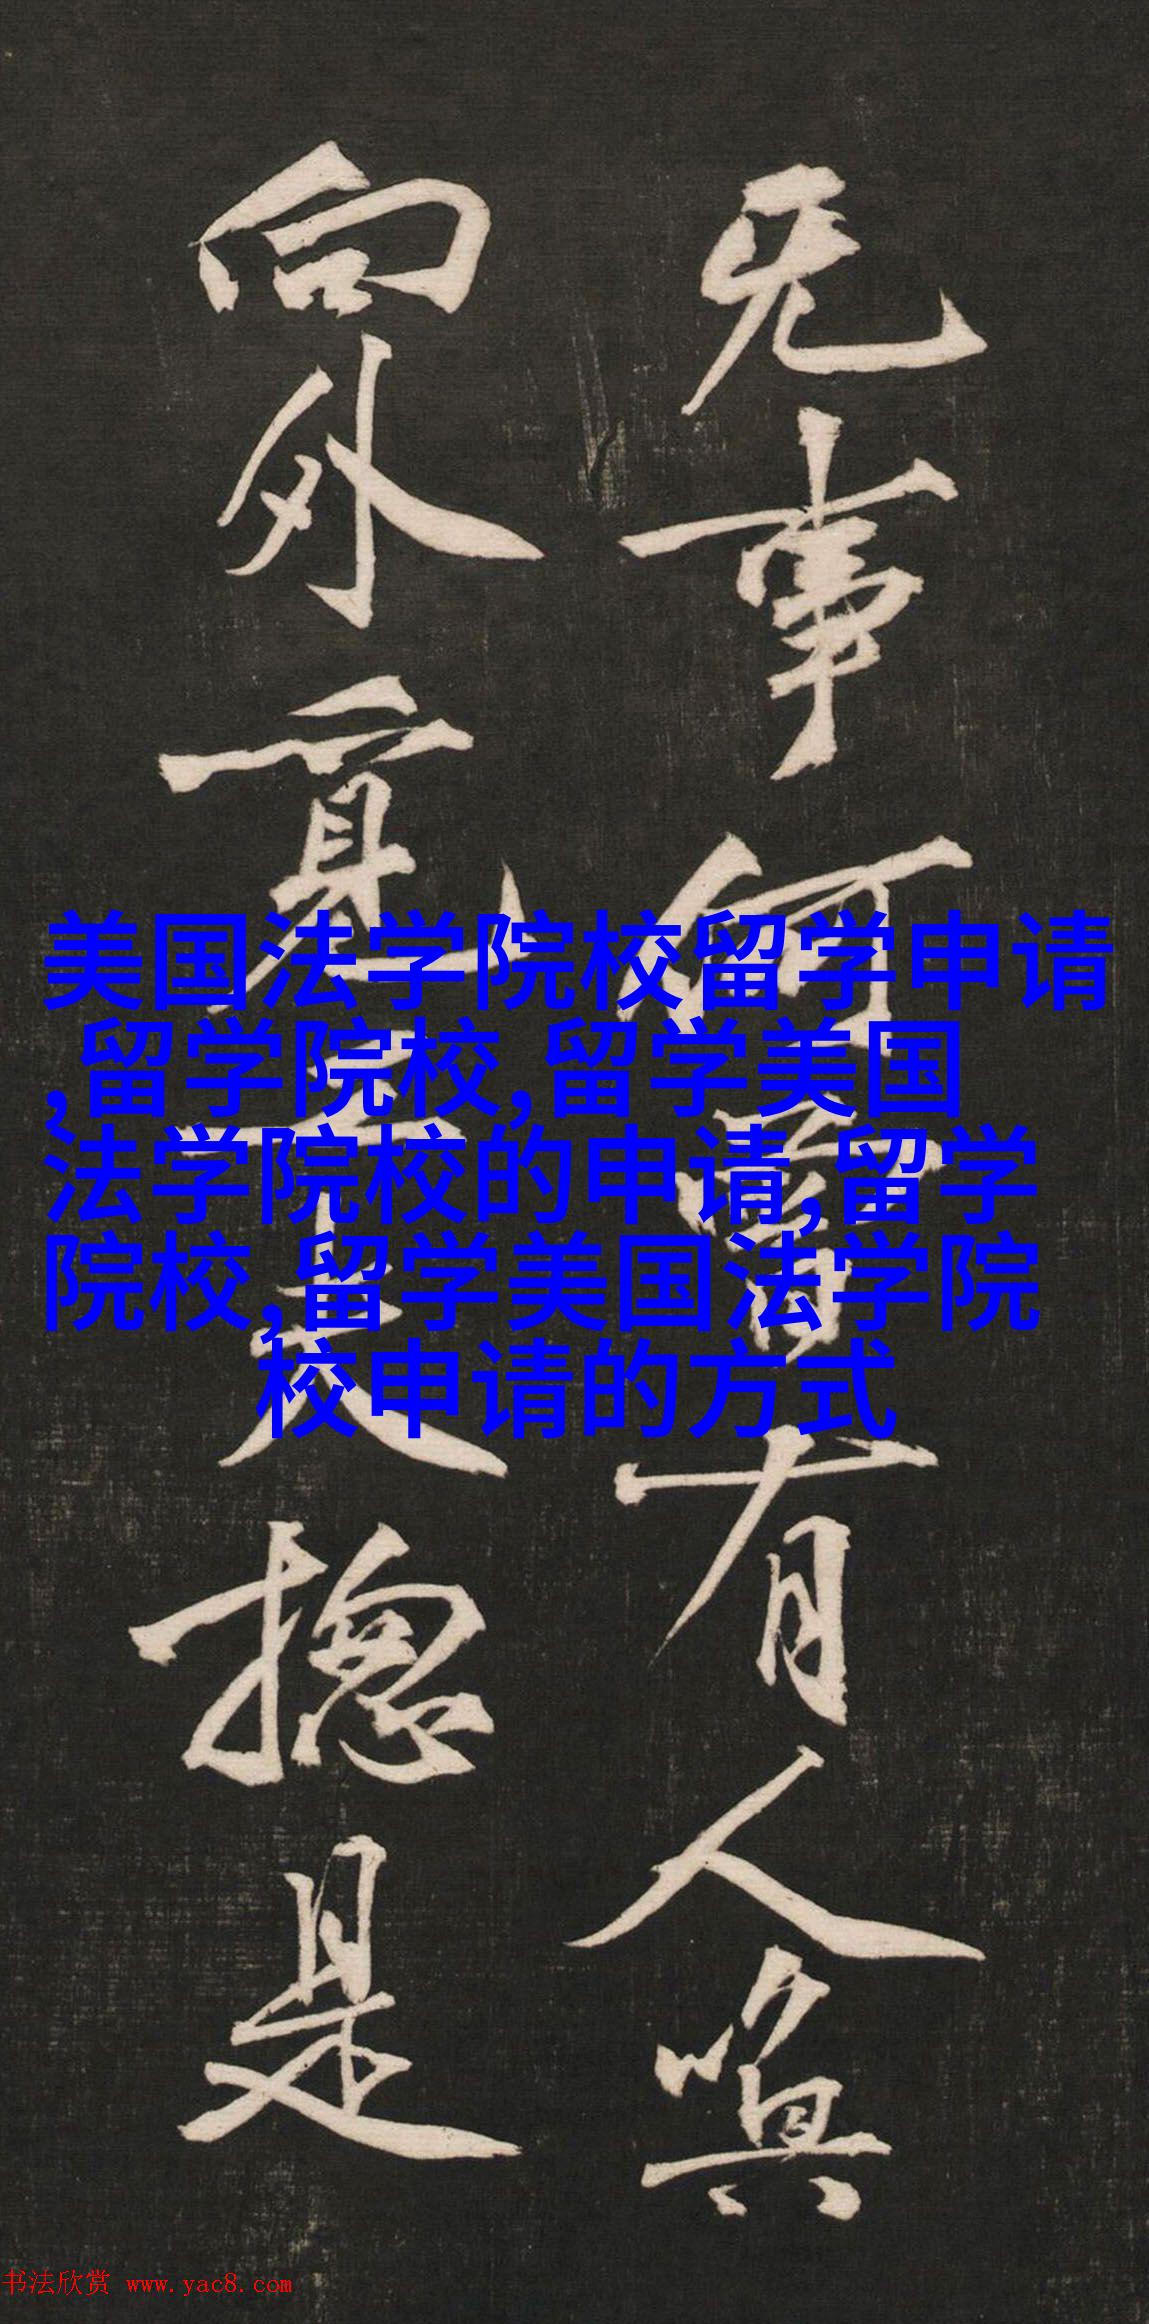 美国法学院校留学申请
,留学院校,留学美国
法学院校的申请,留学
院校,留学美国法学院
校申请的方式
无事何有人
向外覓工夫揔是
书法欣赏 www.yac8.com